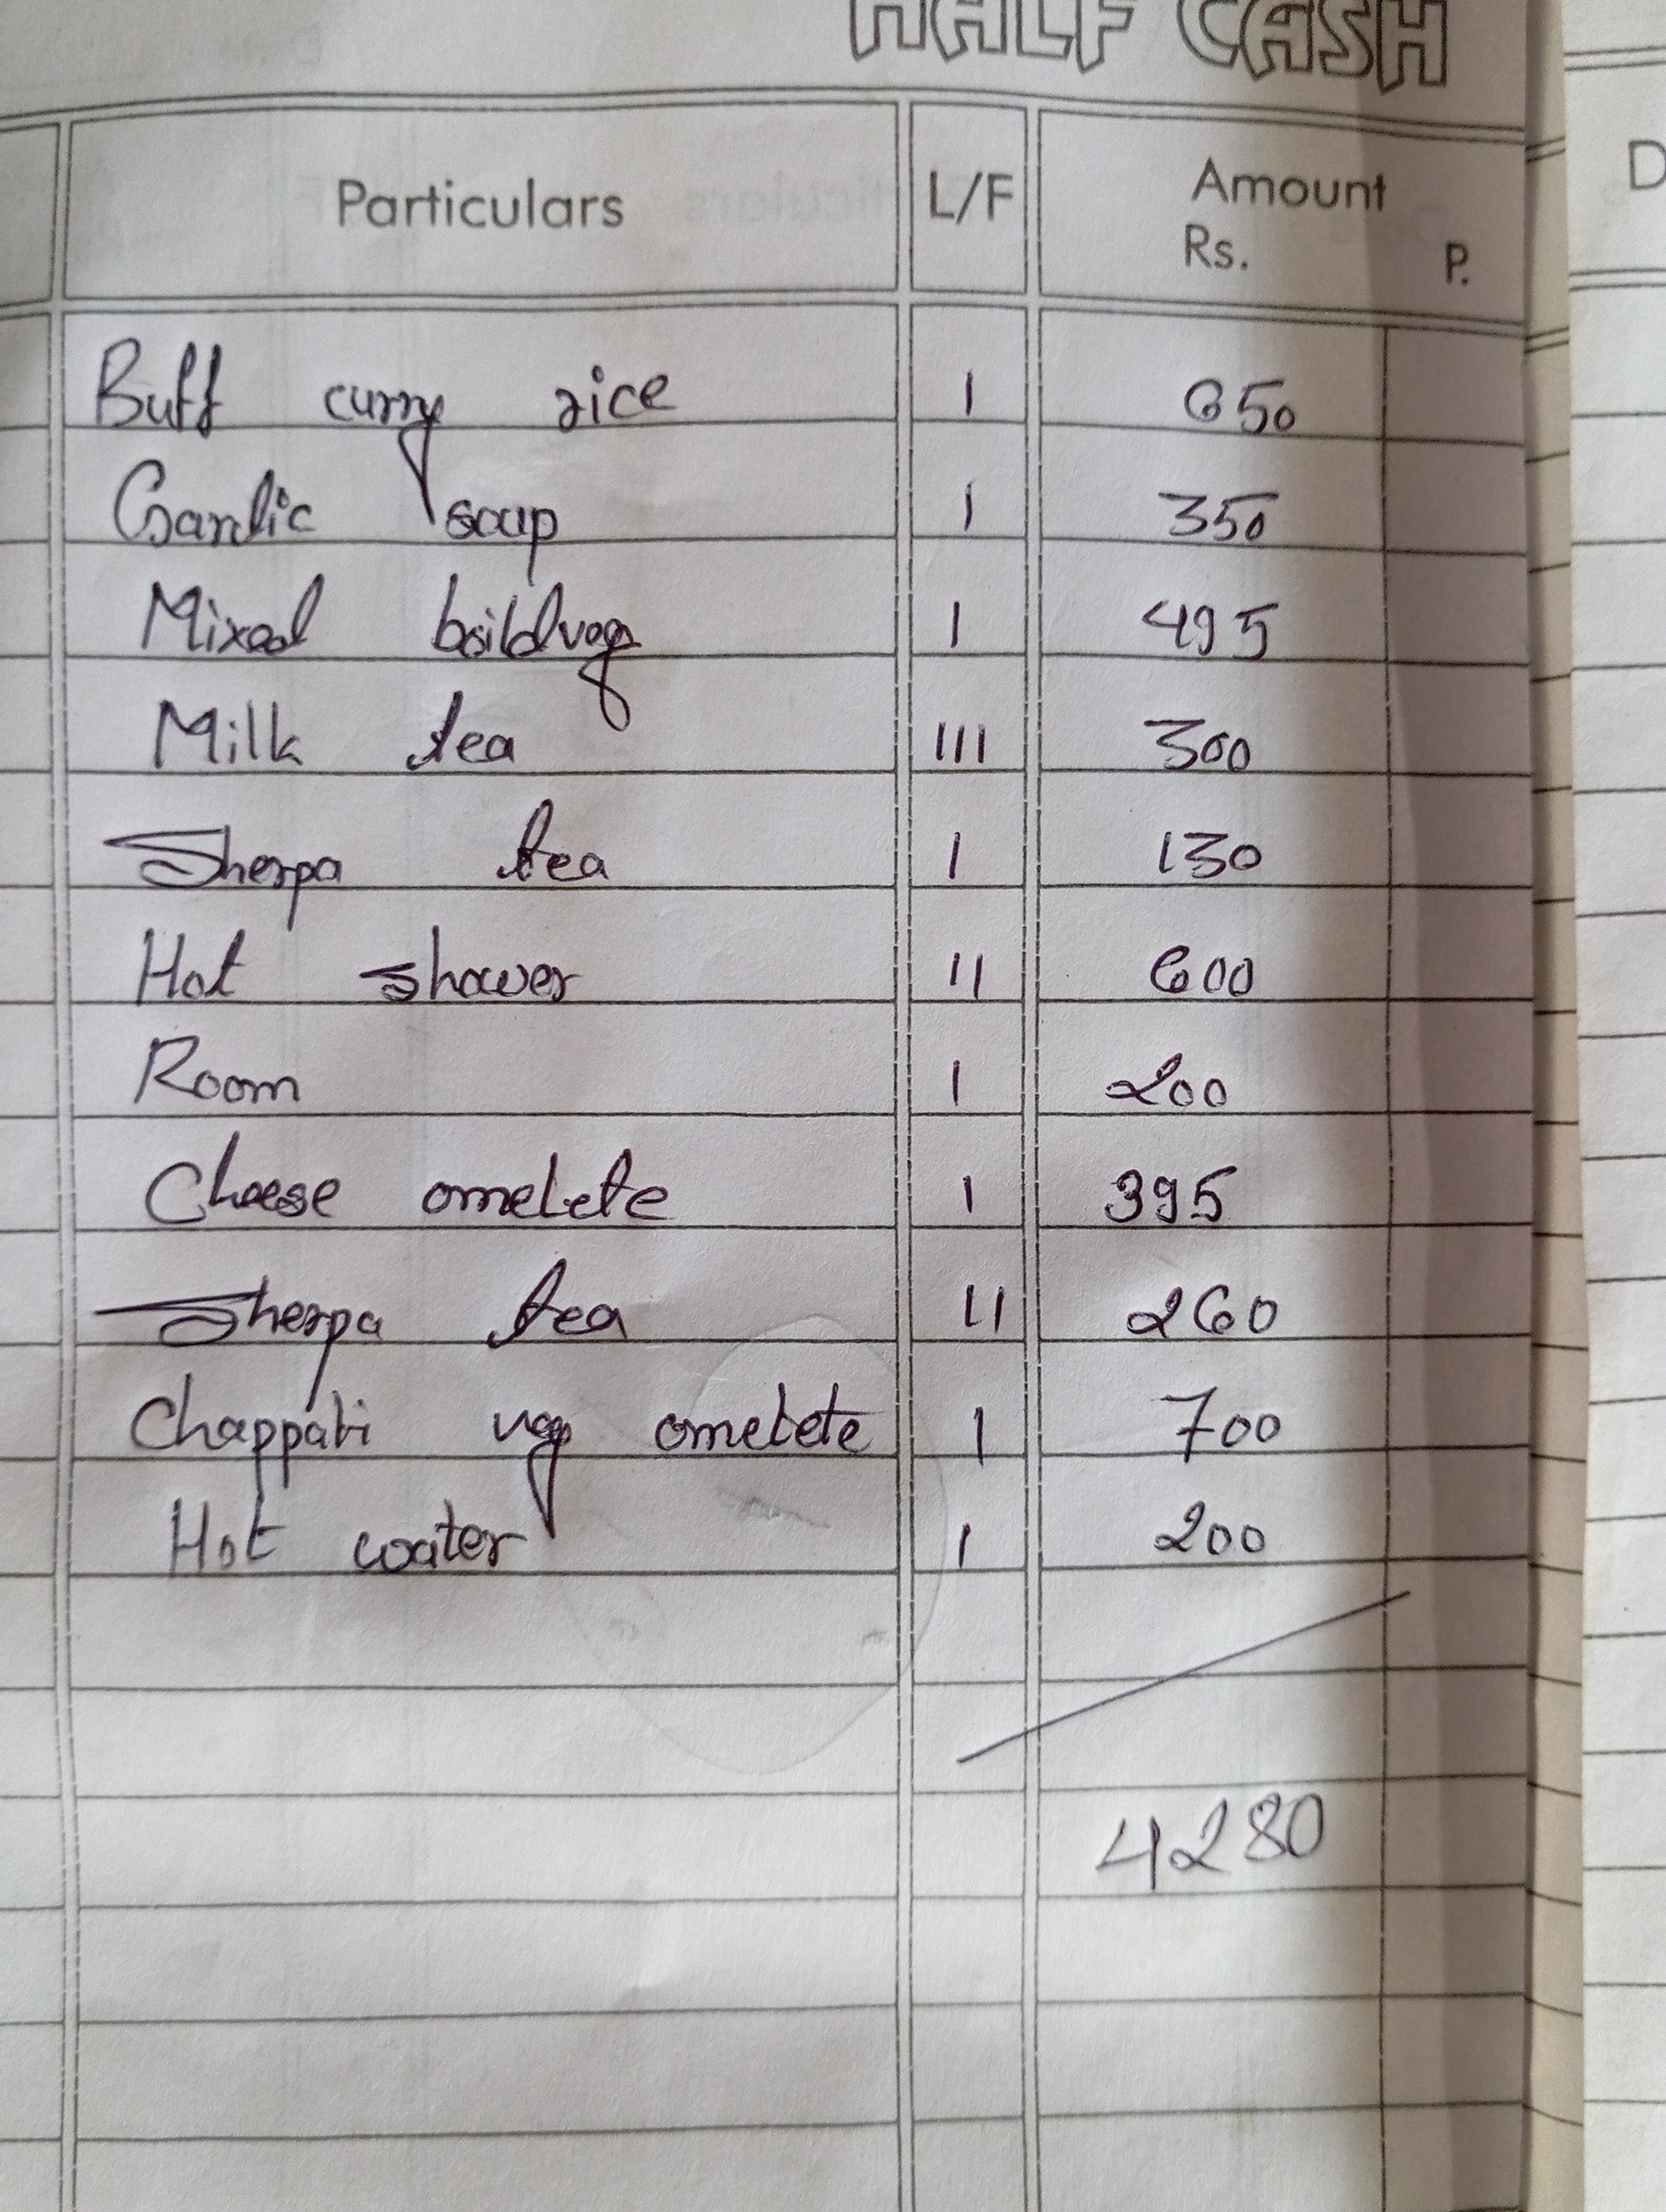 HALF CASH
Particulars L/F Amount
Rs. P.
Buff curry rice I 650
Garlic soup I 350
Mixed boildveg I 495
Milk tea III 300
Sherpa tea I 130
Hot shower II 600
Room I 200
Cheese omelete I 395
Sherpa tea II 260
Chappati veg omelete I 700
Hot water I 200
4280
D